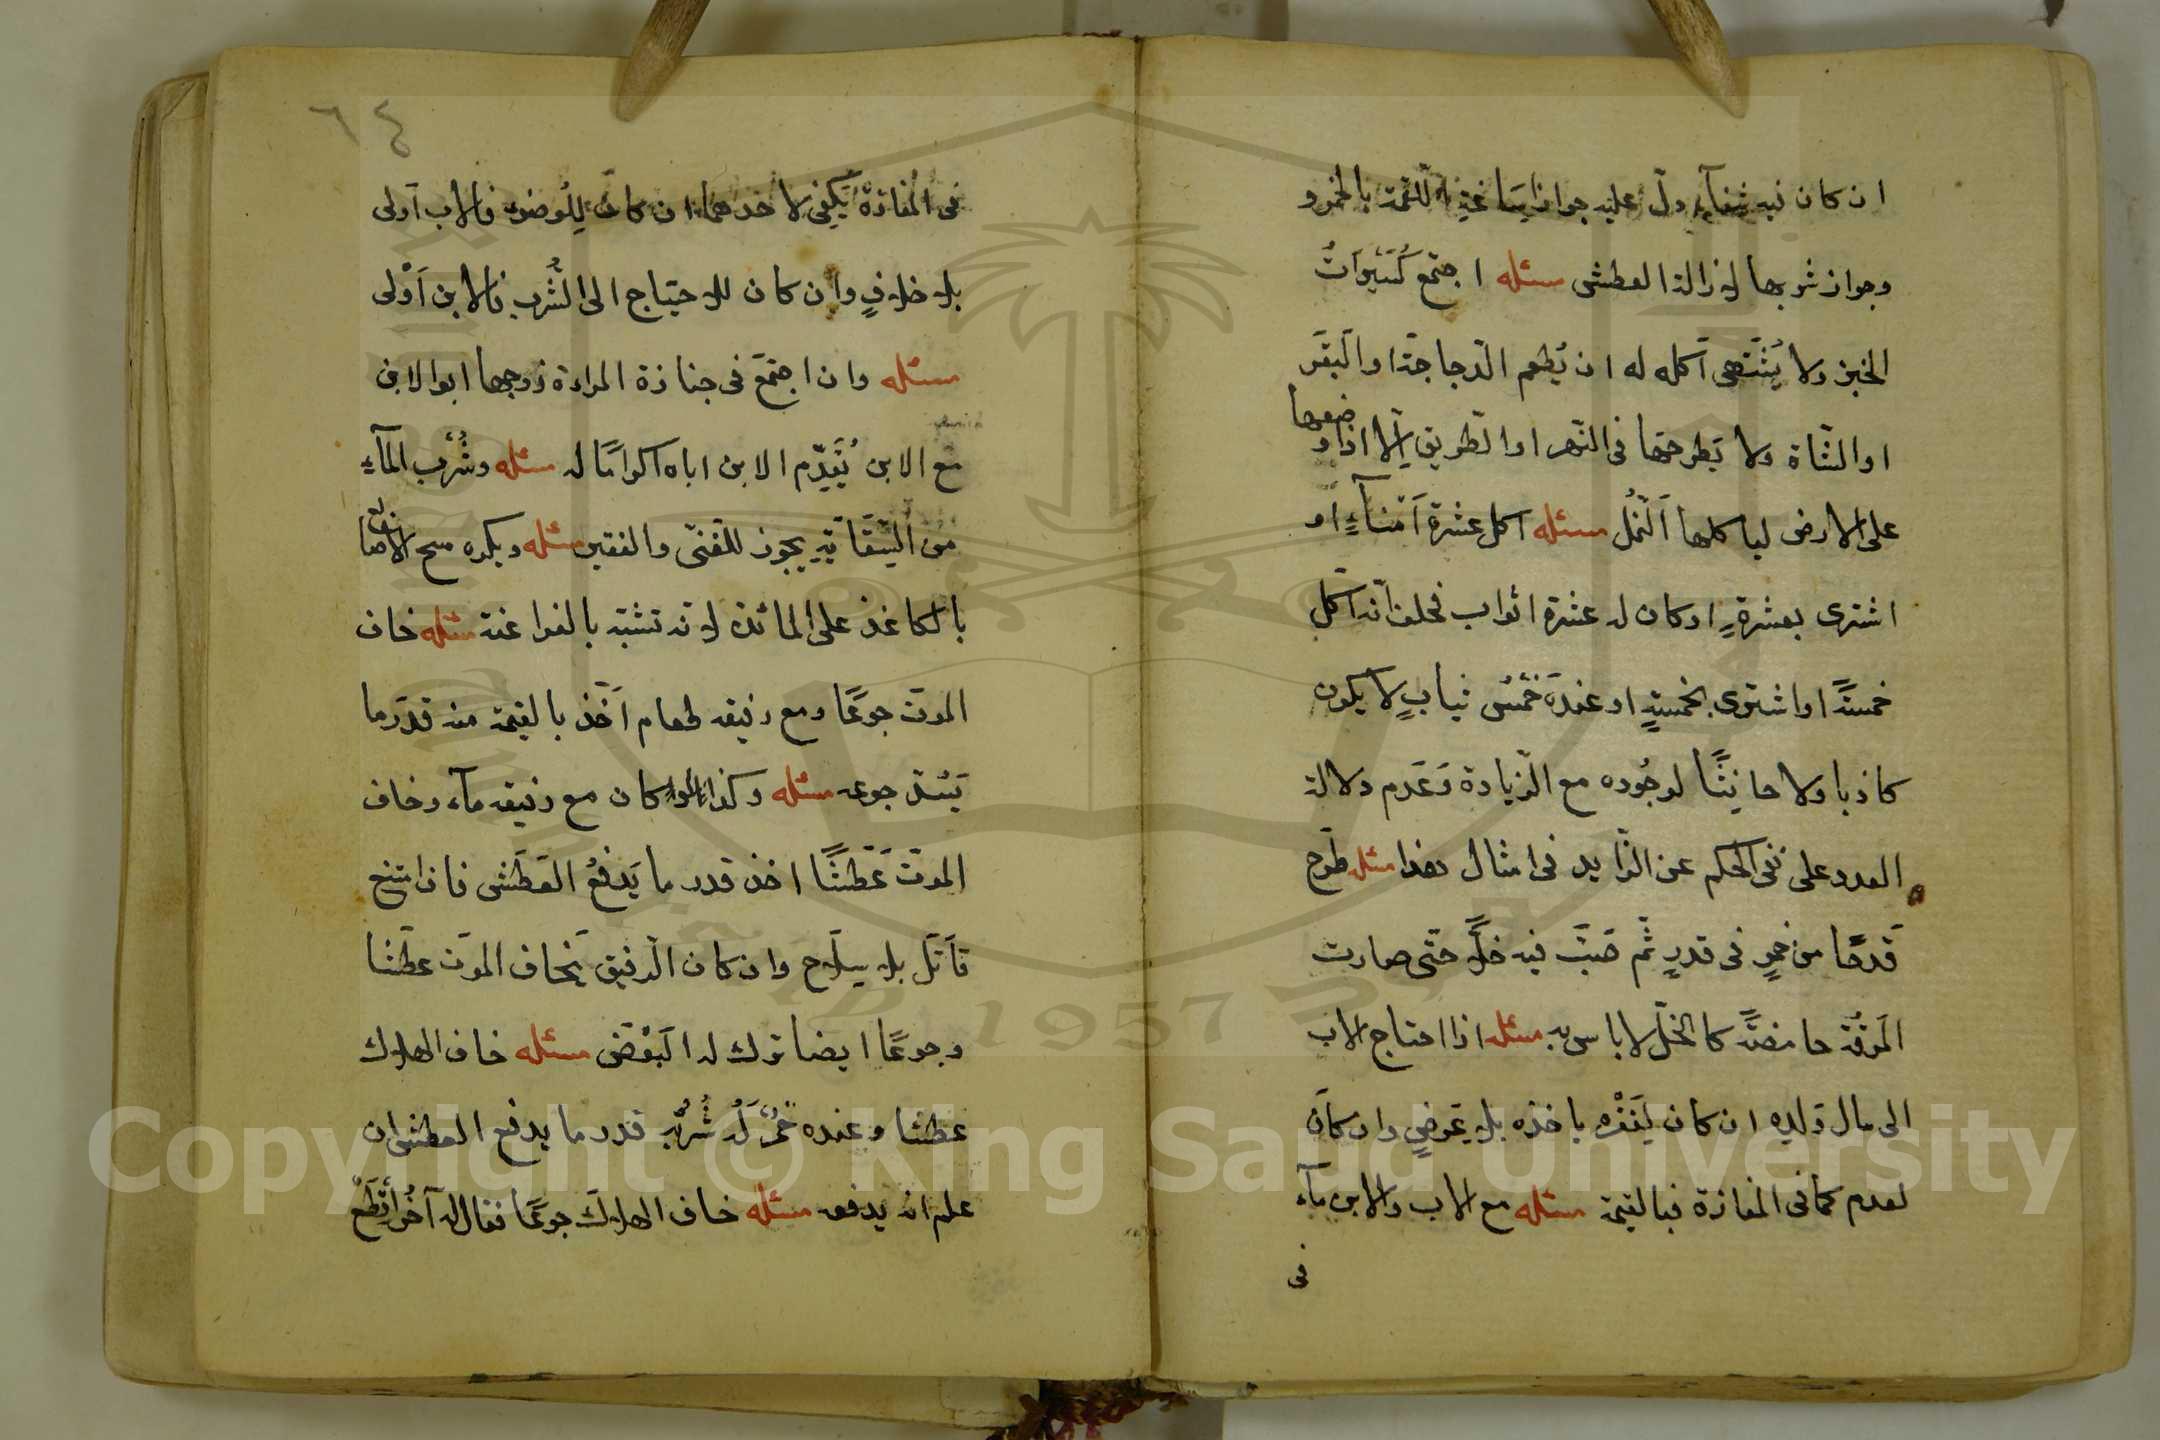 ان كان فيه شفآء ودلّ عليه جواز اِسَاغةِ اللّقمة بالخمر و
وجواز شربها لازالة العطش مسئله اجتمع كُسَيْرَاتُ
الخبز ولا يُشْتَهى اكله له ان يُطعم الدّجاجةَ او البَقَر
او الشّاة ولا يَطرحها فى النّهر او الطّريق اِلّا اذا وضعها
على الارض لياكلها اَلنّمْلُ مسئله اكل عشرةَ اَمْنَآءٍ او
اشترى بعشرةٍ او كان له عشرة اثواب فحلف انه اكل
خمسةً او اشترى بخمسةٍ او عندَه خَمْسُ ثيابٍ لا يكون
كاذبا ولا حانِثًا لوجُوده مع الزّيادة وَعَدم دلالة
العدد على نفى الحكم عن الزّايد فى امثال هذا مسئله طرح
قَدحًا من خمرٍ فى قدرٍ ثم صَبّ فيه خلًّا حتّى صارت
المَرقَة حامضةً كالخلّ لا باس به مسئله اذا احتاج الاب
الى مال وَلدِه ان كان لِفَقْرِه ياخذه بلا عَوضٍ وان كان
لعدم كما فى المفازة فبالقيمة مسئله مع الاب والابن مآء
فى
٦٤
فى المفازة يَكفِى لاحدهما ان كان للوضوء فالاب اولى
بلا خلافٍ وان كان للاحتياج الى الشُّرب فالابن اَوْلى
مسئله وان اجتمَع فى جنازة المراءة زوجها ابو الابن
مع الابن يُقَدِّم الابن اباه اكرامًا له مسئله وشُرْب المآءِ
من السِّقَايَةِ يجوز للغنّى والفقير مسئله ويكره مسح الاصابع
بالكاغذ على المائدة لانه تشبّه بالفراعنة مسئله خاف
الموتَ جوعًا ومع رفيقه طعام اَخَذ بالقيمة منه قدَر ما
يَسُدّ جوعه مسئله وكذا لو كان مع رفيقه مآء وخاف
الموتَ عَطشًا اخذ قدر ما يَدفعُ العَطَشَ فان امتنع
قاتَل بلا سِلَاح وان كان الرّفيق يَخاف الموَت عطَشا
وجوعًا ايضا ترك له البَعْضَ مسئله خاف الهلاك
عطشا وعنده خَمْرٌ لَهُ شُرْبُه قدر ما يدفع العطش ان
علم انّه يدفعه مسئله خاف الهلاكَ جوعًا فقال له آخر اِقْطَعْ
Copyright © King Saud University
1957